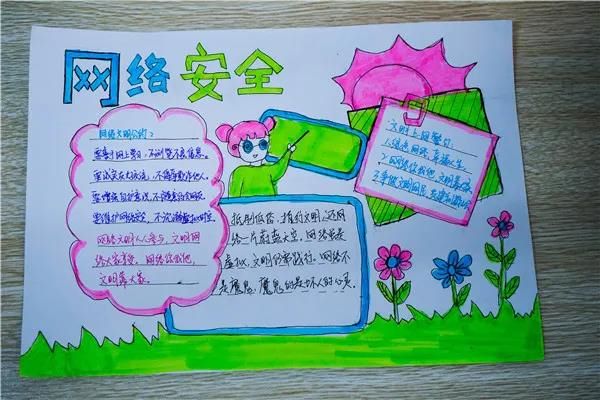 网络安全
网络文明公约：
要善于网上学习，不浏览不良信息。
要诚实友好交流，不侮辱欺诈他人。
要增强自护意识，不随意约会网友。
要维护网络安全，不破坏网络秩序。
网络文明人人参与，文明网
络大家享受。网络你我他，
文明靠大家。
抵制低俗，推行文明，还网
络一片蔚蓝天空。网络虽是
虚拟，文明仍需践行。网络不
是魔鬼，魔鬼的是坏人的心灵。
文明上网警句：
1.绿色网络，幸福人生。
2.网络你我他，文明靠大家
3.争做文明网民，